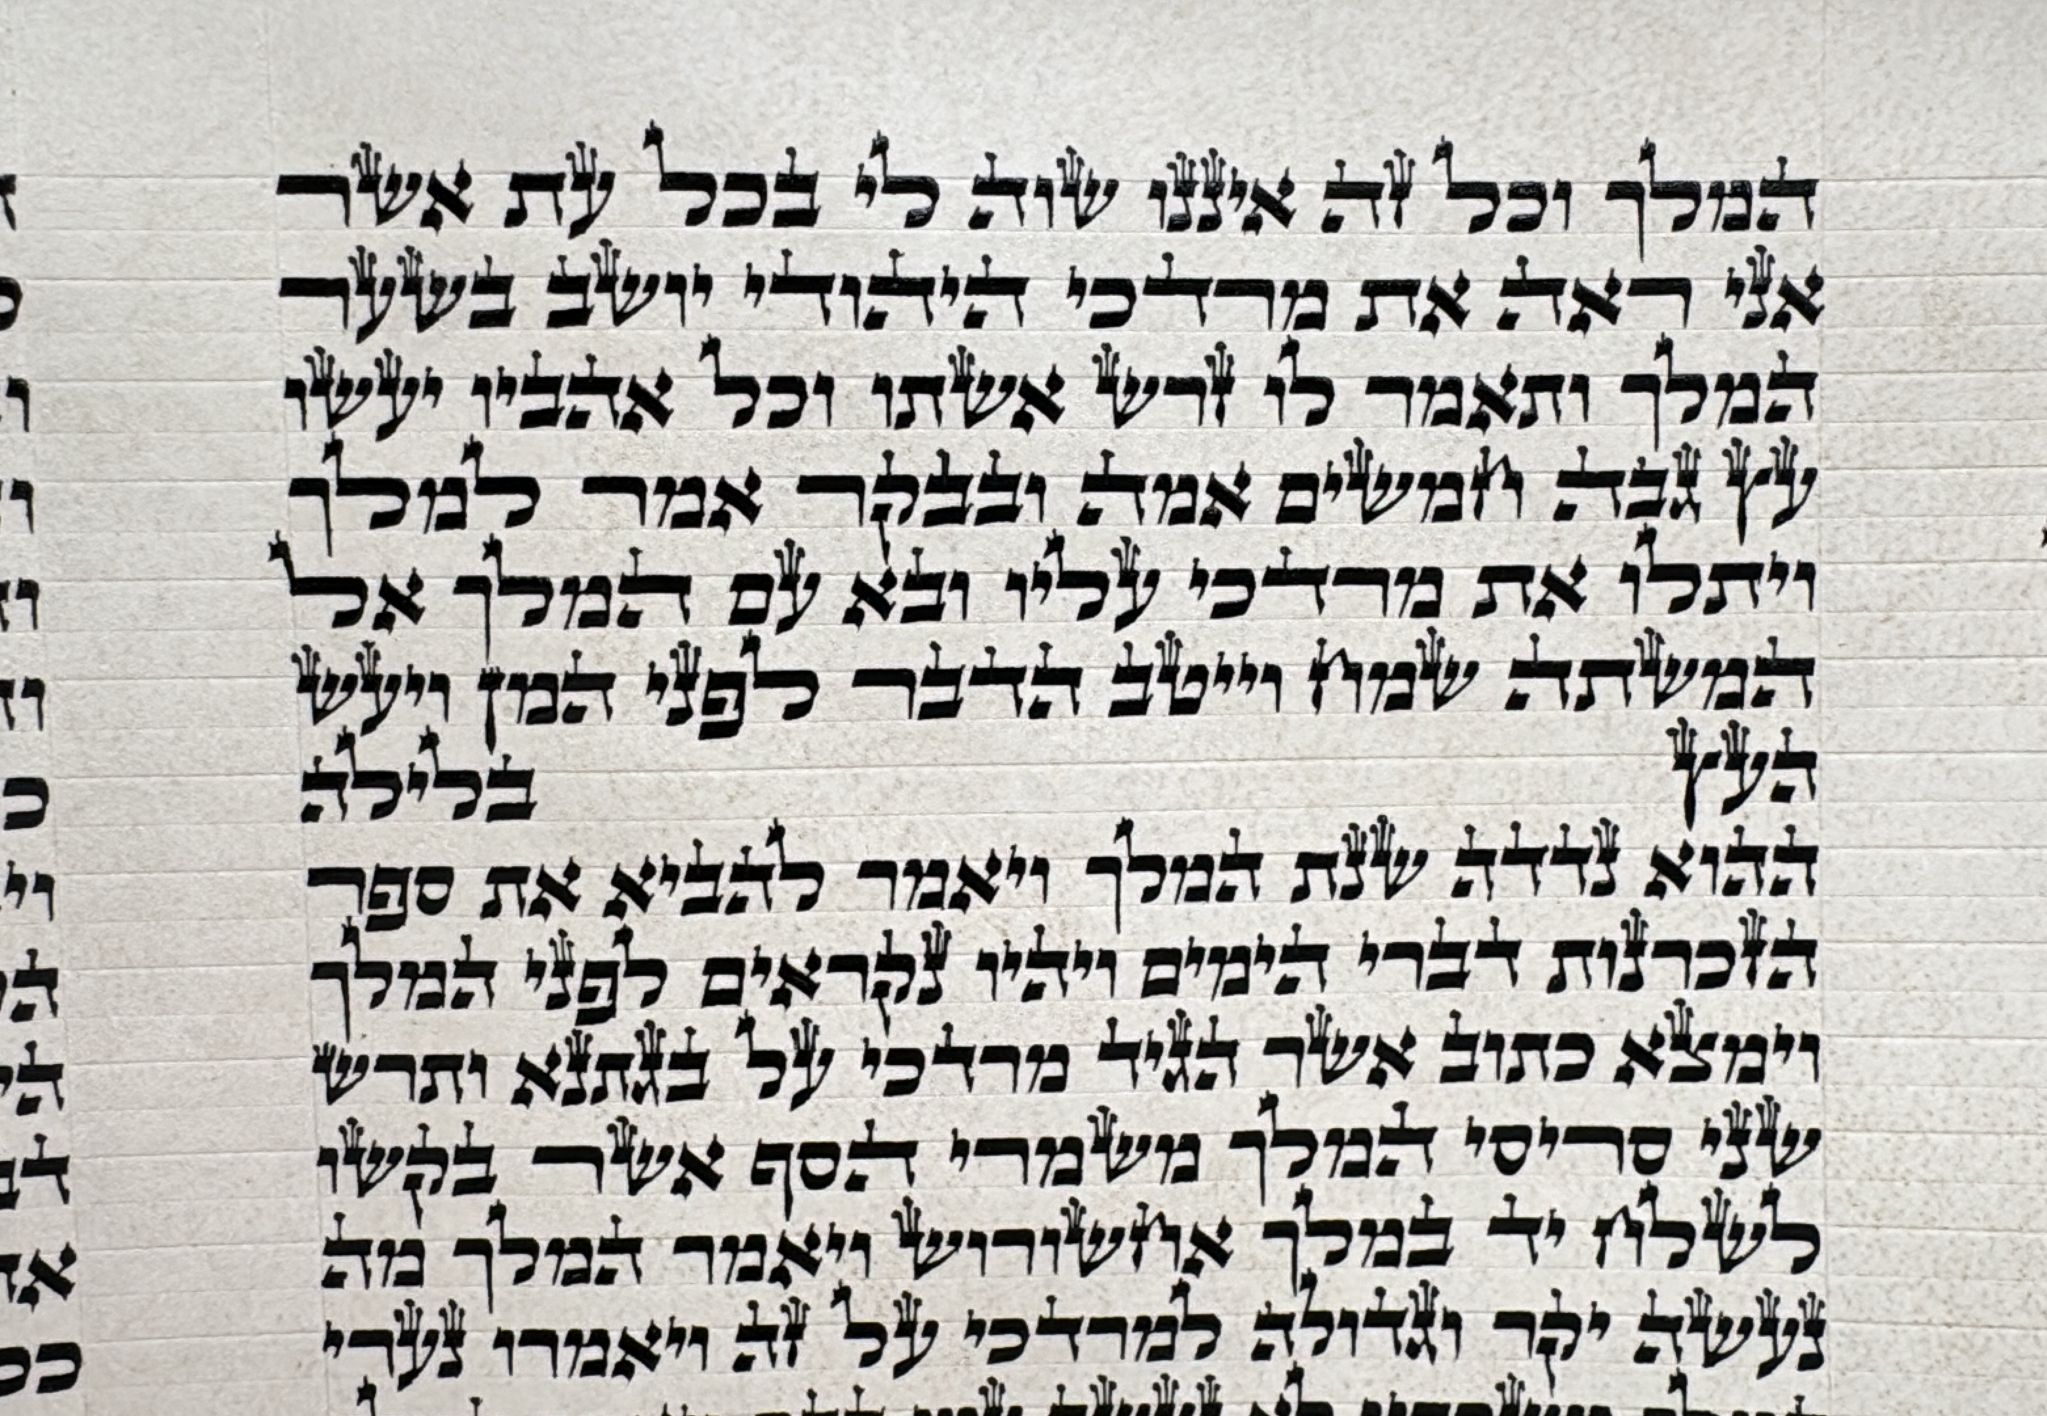 המלך וכל זה איננו שוה לי בכל עת אשר
אני ראה את מרדכי היהודי יושב בשער
המלך ותאמר לו זרש אשתו וכל אהביו יעשו
עץ גבה חמשים אמה ובבקר אמר למלך
ויתלו את מרדכי עליו ובא עם המלך אל
המשתה שמח וייטב הדבר לפני המן ויעש
העץ בלילה
ההוא נדדה שנת המלך ויאמר להביא את ספר
הזכרנות דברי הימים ויהיו נקראים לפני המלך
וימצא כתוב אשר הגיד מרדכי על בגתנא ותרש
שני סריסי המלך משמרי הסף אשר בקשו
לשלח יד במלך אחשורוש ויאמר המלך מה
נעשה יקר וגדולה למרדכי על זה ויאמרו נערי